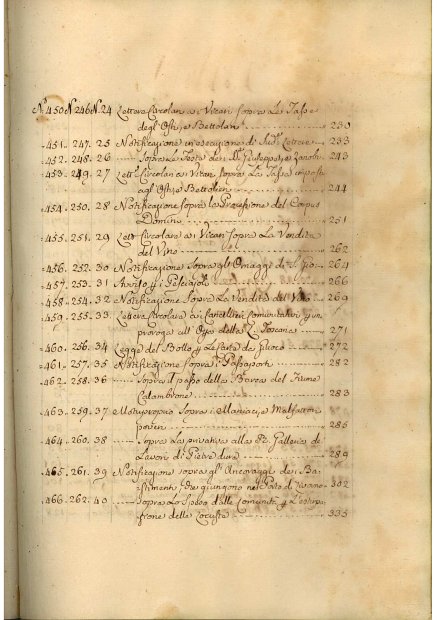 N. 450 N. 246 N. 24 Lettera Circolare ai Vicari sopra Le Tasse
degl'Osti, e Bettolani 230
451. 247. 25 Notificazione in esecuzione di Sud. Lettera 233
452. 248. 26 Sopra Le Feste dei SS. Giuseppe, e Zanobi 243
453. 249. 27 Lett. Circolare ai Vicari sopra La Tassa imposta
agl'Osti, e Bettolieri 244
454. 250. 28 Notificazione Sopra la Processione del Corpus
Domini 251
455. 251. 29 Lett. Circolare a i Vicari sopra La Vendita
del Vino 262
456. 252. 30 Notificazione Sopra gl'Omaggi di S. Gio. 264
457. 253. 31 Avviso p. i Pesciajoli 266
458. 254. 32 Notificazione Sopra La Vendita del Vino 269
459. 255. 33 Lettera Circolare ai Cancellieri Comunitativi p. un
proroga all' della Toscana 271
460. 256. 34 Legge del Bollo p. Le Carte da Giuoco 272
461. 257. 35 Notificazione Sopra i Passaporti 282
462. 258. 36 Sopra il passo della Barca del Fiume
Calambrone 283
463. 259. 37 Motuproprio Sopra i Maniaci, e Malfattori
poveri 286
464. 260. 38 Sopra La privativa alla Galleria de
Lavori di Pietre dure 289
465. 261. 39 Notificazione sopra gl'Ancoraggi dei Ba-
stimenti, che giungono nel Porto di Livorno 302
466. 262. 40 Sopra Lo Sgravo dalle Comunità p. L'estir-
pazione delle Locuste 335